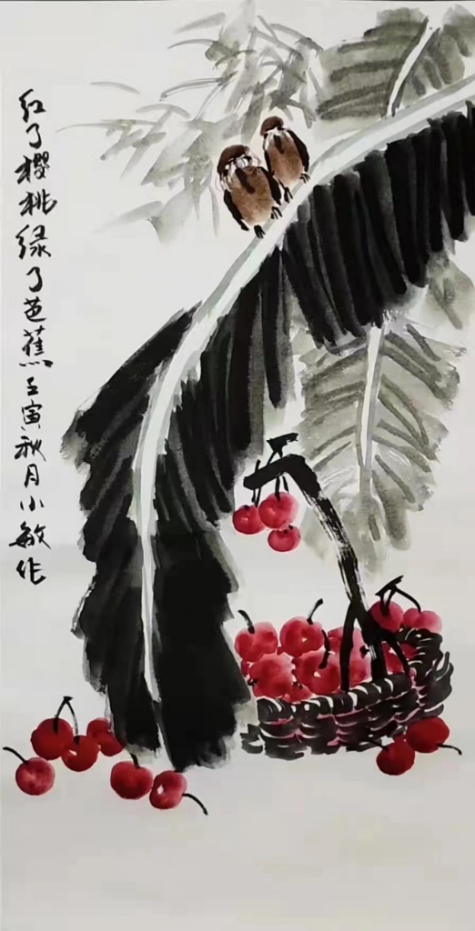 红了樱桃绿了芭蕉壬寅秋月小敏作